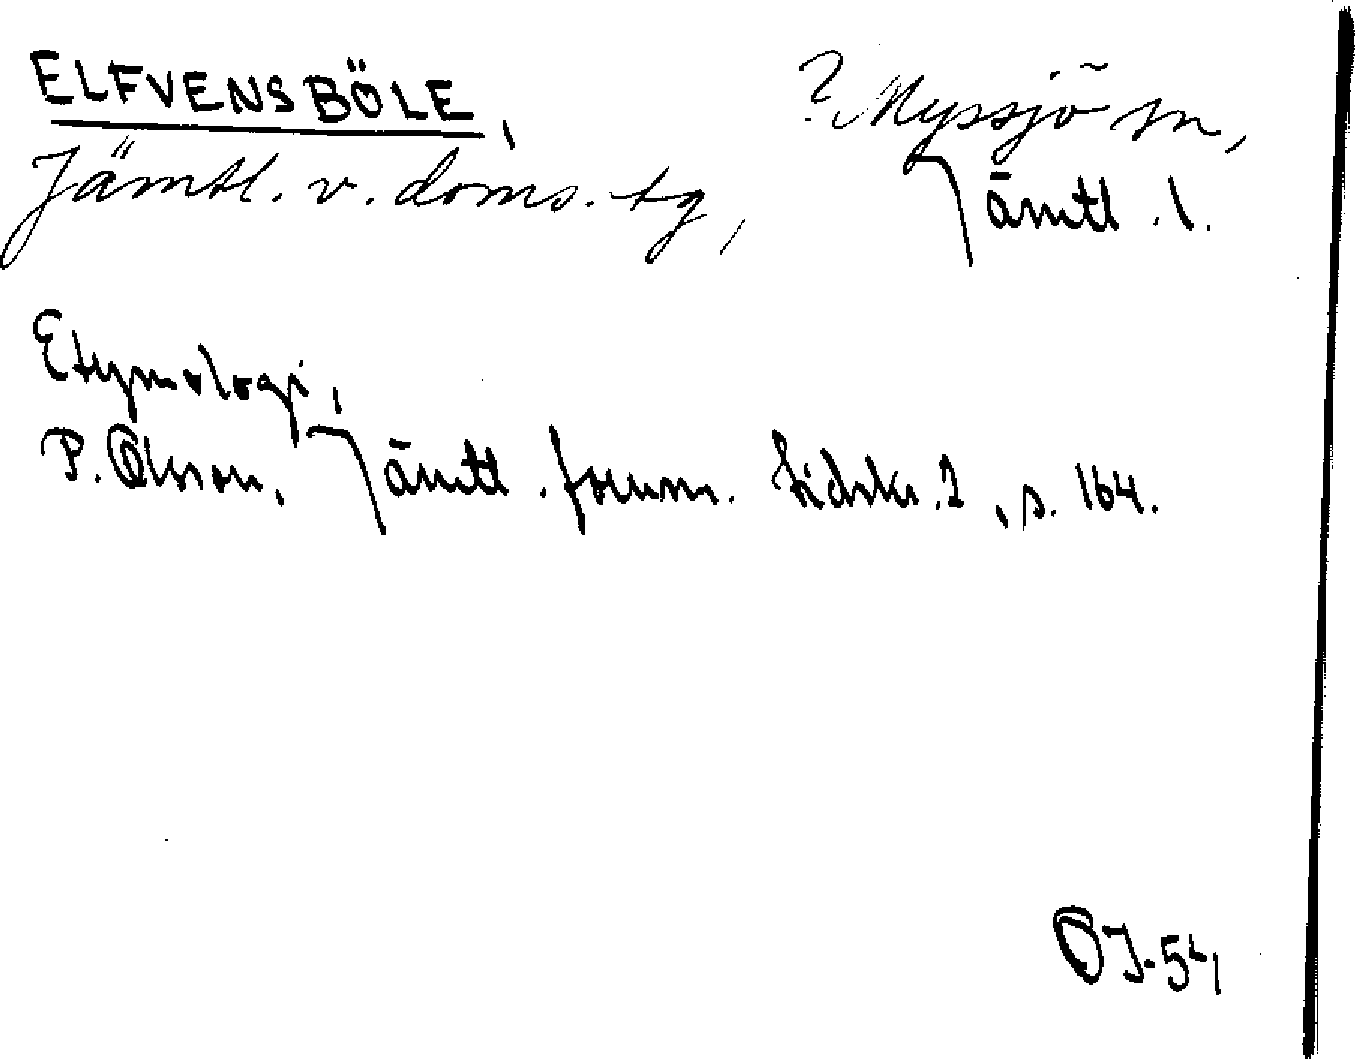 ELFVENSBÖLE,
? Myssjö sn,
Jämtl. v. doms. tg,
Jämtl. l.
Etymologi,
P. Olsson, Jämtl. fornm. tidskr. 2, s. 164.
OJ-54